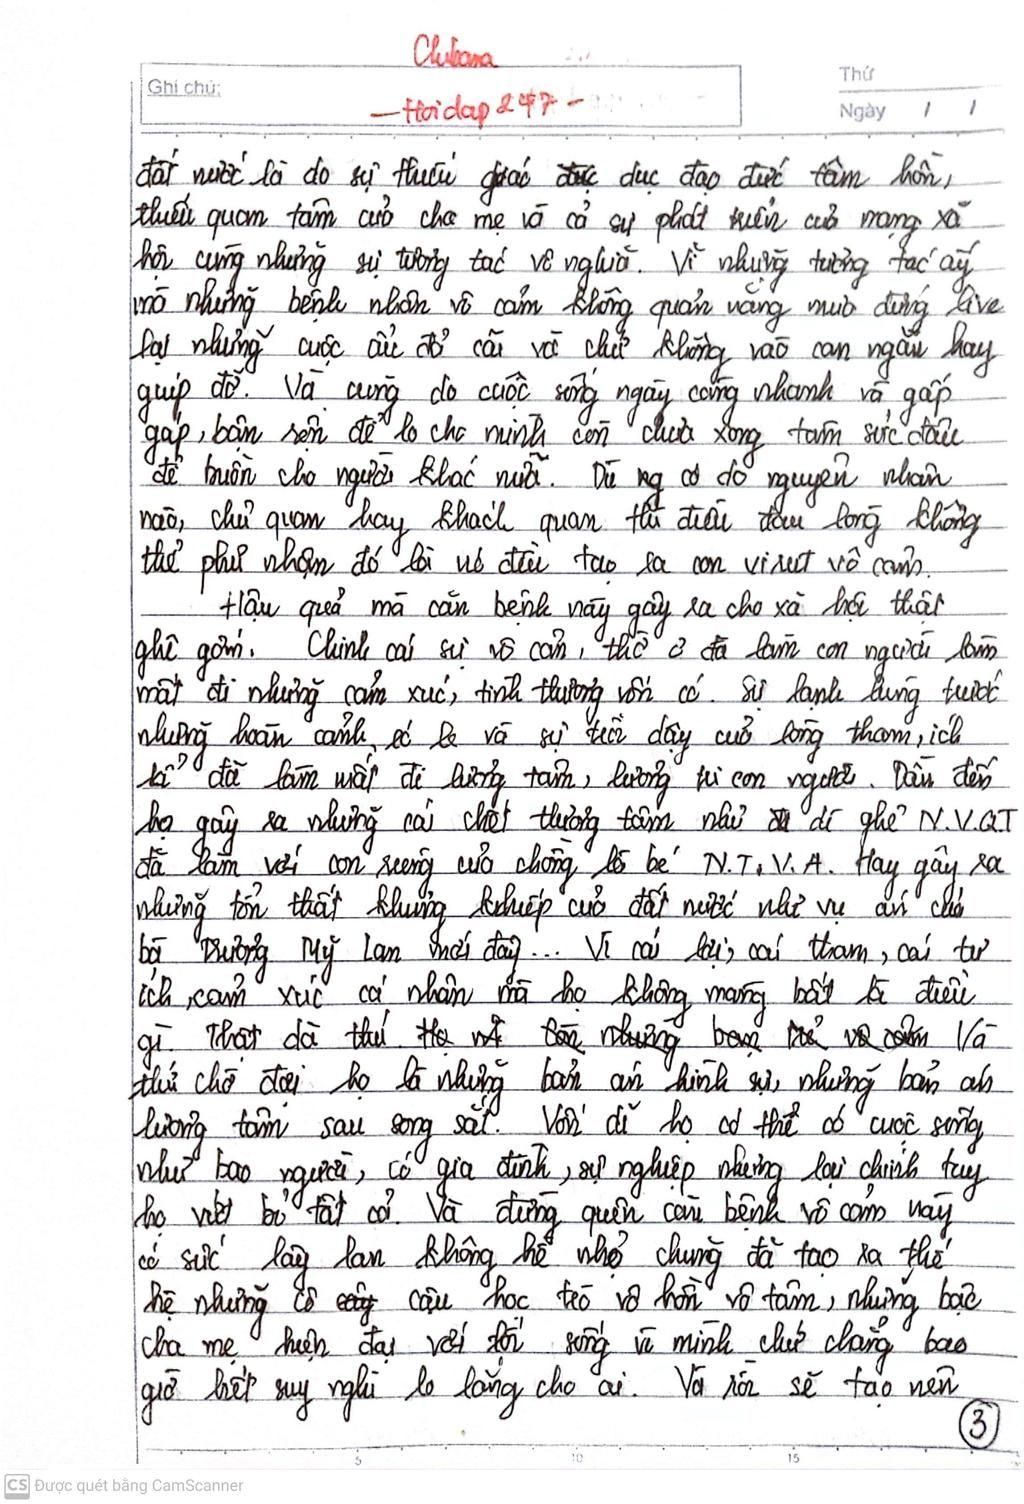 Chibana
Ghi chú:
Thứ
- Hoidap 247 -
Ngày / /
đất nước là do sự thiếu giáo dục đạo đức tâm hồn,
thiếu quan tâm của cha mẹ và cả sự phát triển của mạng xã
hội cùng những sự tương tác vô nghĩa. Vì những tương tác ấy
mà những bệnh nhân vô cảm không quản nắng mưa đứng live
lại những cuộc ẩu đả cãi vã chứ không vào can ngăn hay
giúp đỡ. Và cũng do cuộc sống ngày càng nhanh và gấp
gáp, bận rộn để lo cho mình còn chưa xong tâm sức đâu
để buồn cho người khác nữa. Dù có do nguyên nhân
nào, chủ quan hay khách quan thì điều đau lòng không
thể phủ nhận đó là điều tạo ra con virut vô cảm.
Hậu quả mà căn bệnh này gây ra cho xã hội thật
ghê gớm. Chính cái sự vô cảm, thờ ơ đã làm con người làm
mất đi những cảm xúc, tình thương vốn có. Sự lạnh lùng trước
những hoàn cảnh éo le và sự trỗi dậy của lòng tham, ích
kỉ đã làm mất đi lương tâm, lương tri con người. Dẫn đến
họ gây ra những cái chết thương tâm như dì ghẻ N.V.Q.T
đã làm với con riêng của chồng là bé N.T.V.A. Hay gây ra
những tổn thất khủng khiếp của đất nước như vụ án của
bà Trương Mỹ Lan mới đây... Vì cái lợi, cái tham, cái tư
ích, cảm xúc cá nhân mà họ không màng bất kì điều
gì. Thật dã thú. Và
thứ chờ đợi họ là những bản án hình sự, những bản án
lương tâm sau song sắt. Vốn dĩ họ có thể có cuộc sống
như bao người, có gia đình, sự nghiệp nhưng lại chính tay
họ vứt bỏ tất cả. Và đừng quên căn bệnh vô cảm này
có sức lây lan không hề nhỏ chúng đã tạo ra thế
hệ những cô cậu học trò vô hồn vô tâm, những bậc
cha mẹ hiện đại với lối sống vì mình chứ chẳng bao
giờ hết suy nghĩ lo lắng cho ai. Và rồi sẽ tạo nên
3
5 10 15
CS Được quét bằng CamScanner